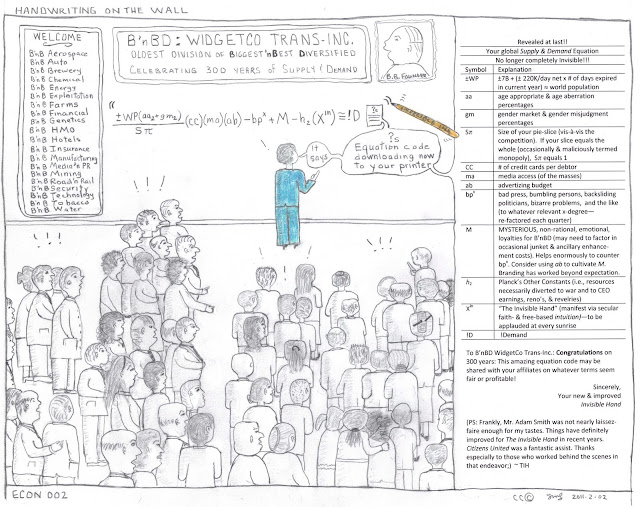 HANDWRITING ON THE WALL
WELCOME
B'nB Aerospace
B'nB Auto
B'nB Brewery
B'nB Chemical
B'nB Energy
B'nB Exploitation
B'nB Farms
B'nB Financial
B'nB Genetics
B'nB HMO
B'nB Hotels
B'nB Insurance
B'nB Manufacturing
B'nB Media & PR
B'nB Mining
B'nB Road 'n Rail
B'nB Security
B'nB Technology
B'nB Tobacco
B'nB Water
B'nBD: WIDGETCO TRANS-INC.
OLDEST DIVISION OF BIGGEST'nBEST DIVERSIFIED
CELEBRATING 300 YEARS of SUPPLY & DEMAND
B.B. Founder
"±WP(aa₂+gm₂)/Sπ (cc)(ma)(ab) - bpˣ + M - h₂(Xᴵᴴ) ≅ !D
?s
INVISIBLE HAND
IT
SAYS
?s
Equation code
downloading now
to your printer
!!!
!!!
!!!
!!!
ECON 002
CC© 2011-2-02
Revealed at last!!
Your global Supply & Demand Equation
No longer completely Invisible!!!
Symbol Explanation
±WP ±7B + (± 220K/day net x # of days expired
in current year) ≈ world population
aa age appropriate & age aberration
percentages
gm gender market & gender misjudgment
percentages
Sπ Size of your pie-slice (vis-à-vis the
competition). If your slice equals the
whole (occasionally & maliciously termed
monopoly), Sπ equals 1
CC # of credit cards per debtor
ma media access (of the masses)
ab advertizing budget
bpˣ bad press, bumbling persons, backsliding
politicians, bizarre problems, and the like
(to whatever relevant x-degree—
re-factored each quarter)
M MYSTERIOUS, non-rational, emotional,
loyalties for B'nBD (may need to factor in
occasional junket & ancillary enhance-
ment costs). Helps enormously to counter
bpˣ. Consider using ab to cultivate M.
Branding has worked beyond expectation.
h₂ Planck's Other Constants (i.e., resources
necessarily diverted to war and to CEO
earnings, reno's, & revelries)
Xᴵᴴ "The Invisible Hand" (manifest via secular
faith- & free-based intuition)—to be
applauded at every sunrise
!D !Demand
To B'nBD WidgetCo Trans-Inc.: Congratulations on
300 years: This amazing equation code may be
shared with your affiliates on whatever terms seem
fair or profitable!
Sincerely,
Your new & improved
Invisible Hand
(PS: Frankly, Mr. Adam Smith was not nearly laissez-
faire enough for my tastes. Things have definitely
improved for The Invisible Hand in recent years.
Citizens United was a fantastic assist. Thanks
especially to those who worked behind the scenes in
that endeavor;) ~ TIH